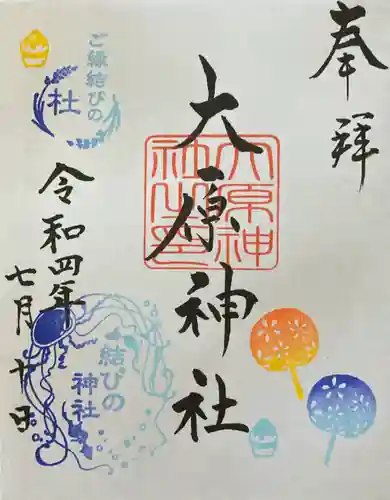 奉拝
大原神社
大原神社之印
令和四年
七月廿日
ご縁結びの
杜
結びの
神社